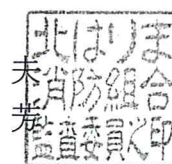 北はりま
消防組合
監査委員之印
芳